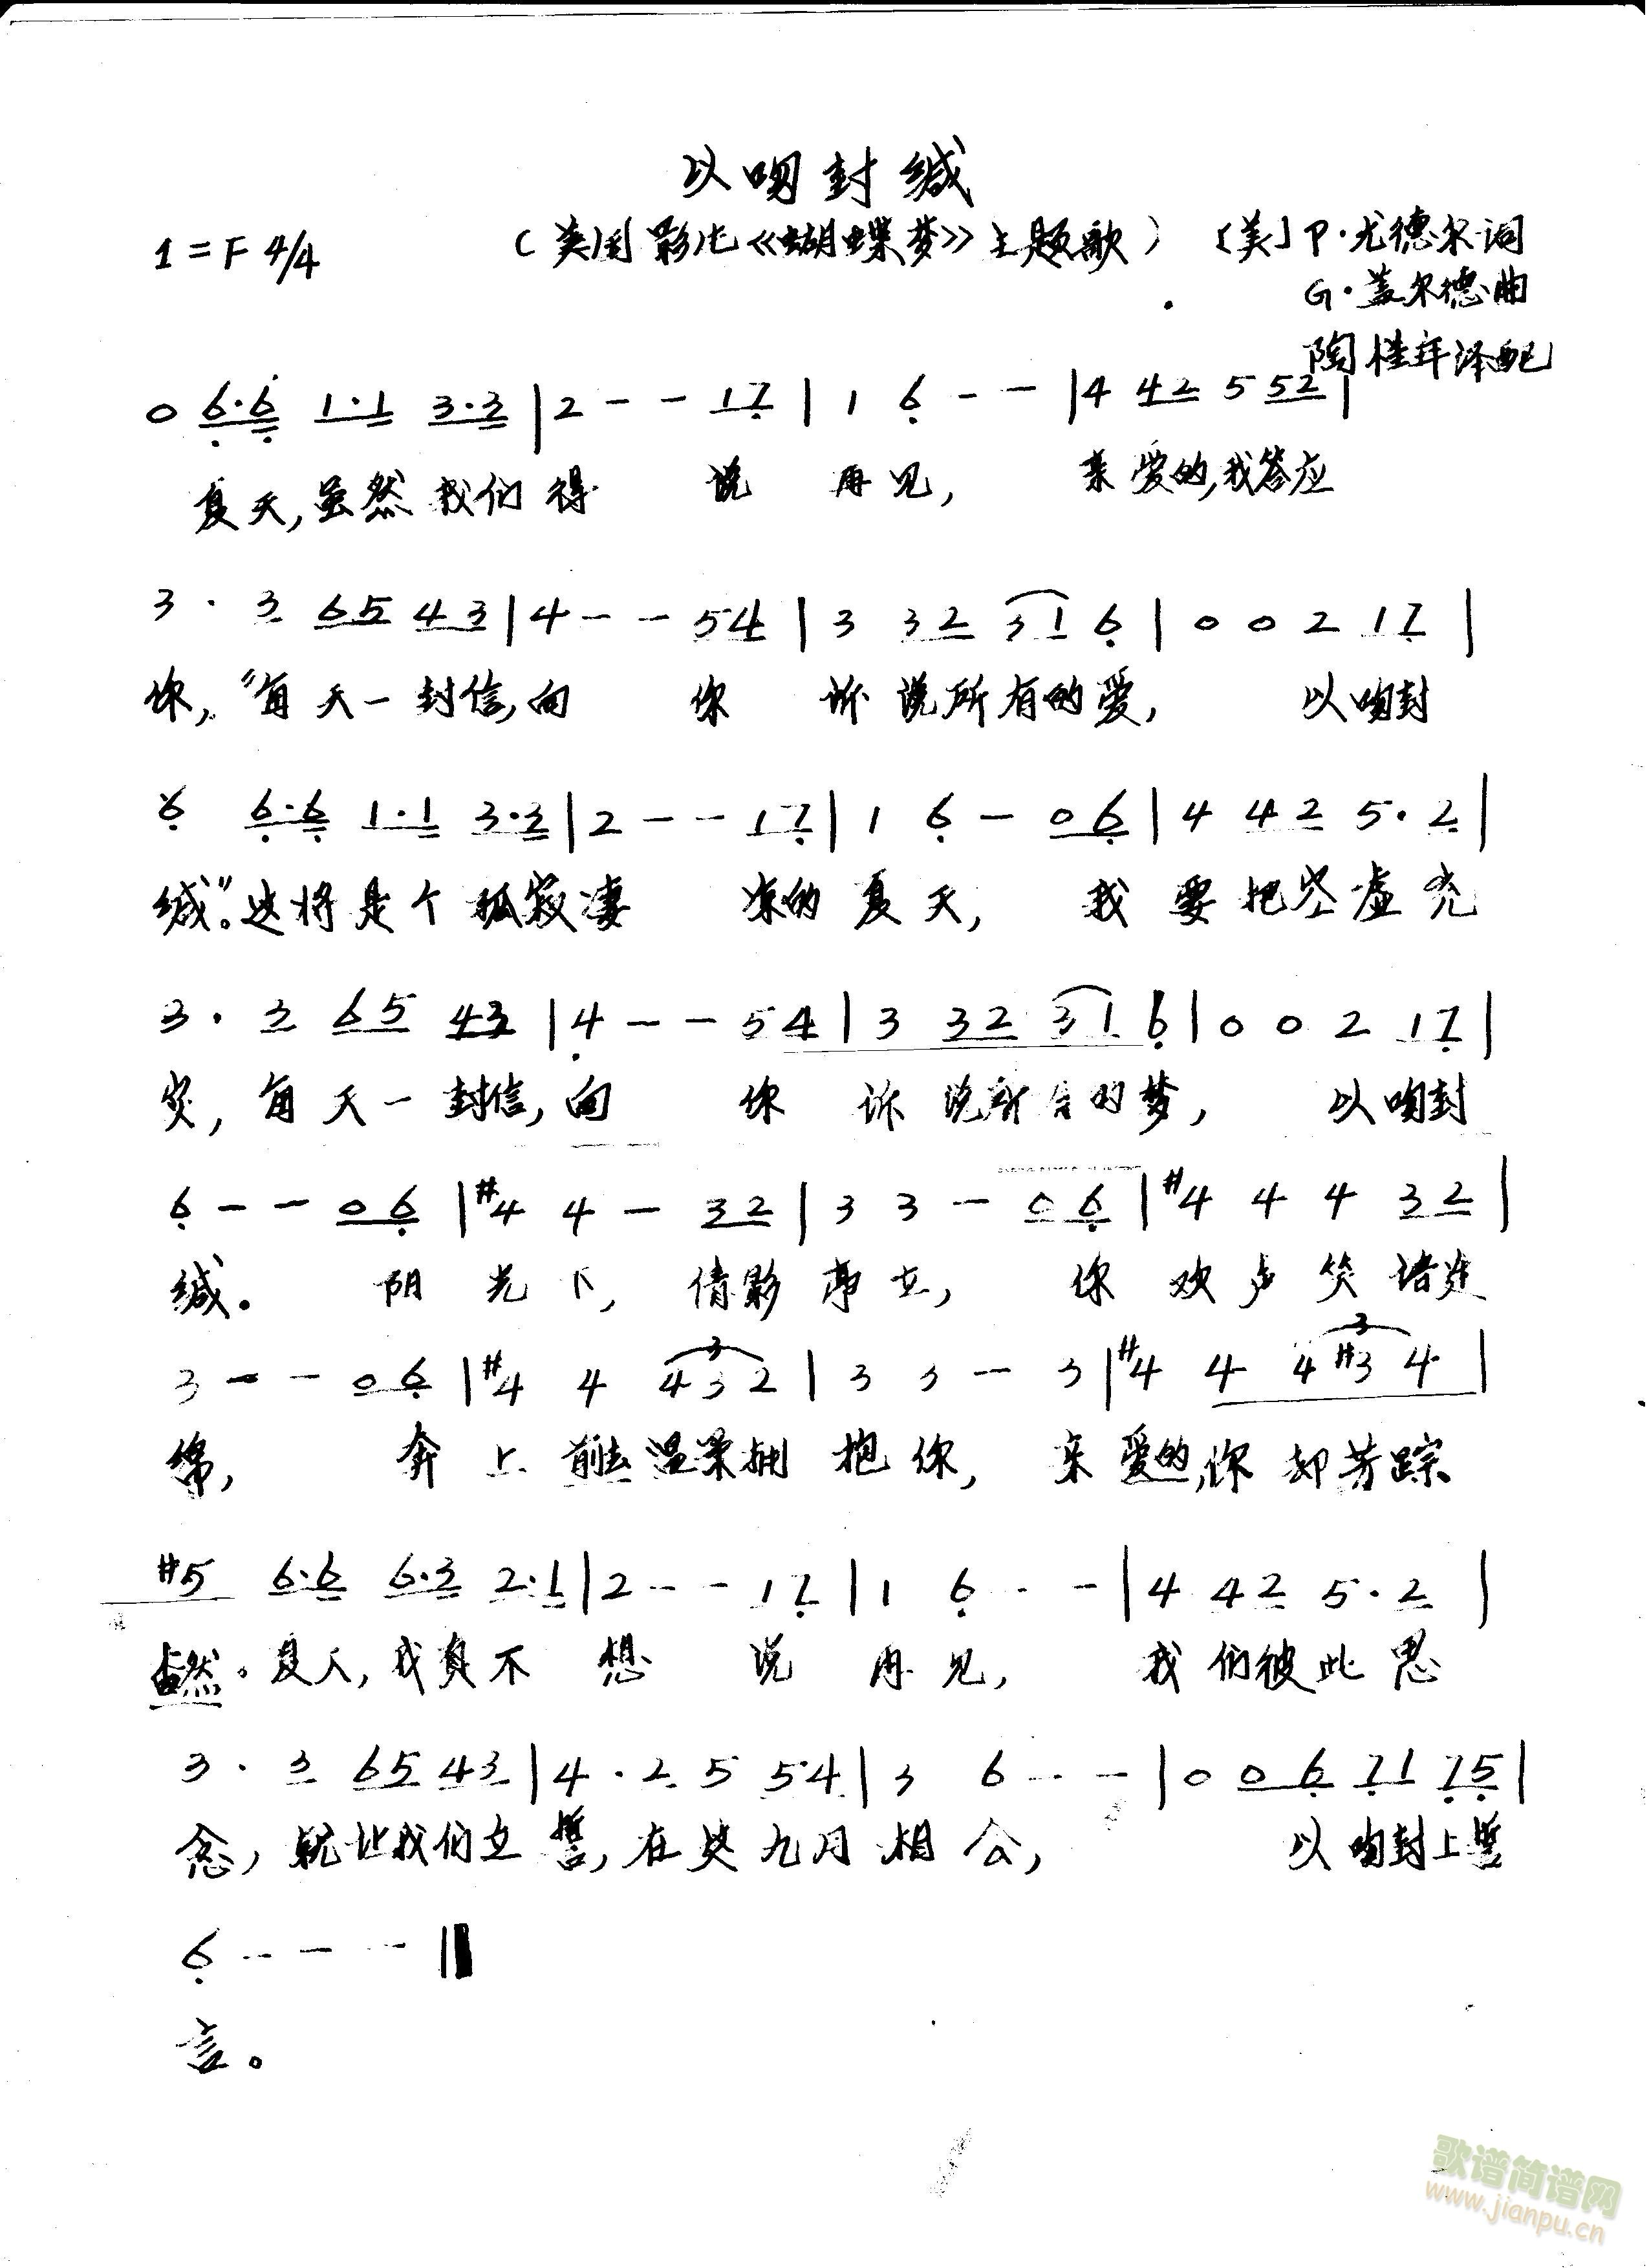 以吻封缄
1=F 4/4 (美国影片《蝴蝶梦》主题歌) [美] P·尤德尔词
G·盖尔德曲
陶桂年译配
0 6·6 1·1 3·3 | 2 - - 17 | 1 6 - - | 4 42 5 52 |
夏天,虽然我们得 说 再见, 亲爱的,我答应
3 · 3 65 43 | 4 - - 54 | 3 32 31 6 | 0 0 2 17 |
你,“每天一封信,向 你 诉说所有的爱, 以吻封
6 6·6 1·1 3·3 | 2 - - 17 | 1 6 - 06 | 4 42 5·2 |
缄”。这将是个孤寂凄 凉的夏天, 我要把空虚充
3 · 3 65 43 | 4 - - 54 | 3 32 31 6 | 0 0 2 17 |
实,每天一封信,向 你 诉说所有的梦, 以吻封
6 - - 06 | #4 4 - 32 | 3 3 - 06 | #4 4 4 32 |
缄。 阳光下,倩影亭立, 你欢声笑语连
3 - - 06 | #4 4 432 | 3 3 - 3 | #4 4 4#34 |
3 3
绵, 奔上前去温柔拥抱你, 亲爱的,你却芳踪
#5 6·6 6·3 2·1 | 2 - - 17 | 1 6 - - | 4 42 5·2 |
杳然。夏天,我真不想 说再见, 我们彼此思
3 · 3 65 43 | 4 · 2 5 54 | 3 6 - - | 0 06 71 75 |
念,就让我们立誓,在这九月相会, 以吻封上誓
6 - - - ‖
言。
歌谱简谱网
www.jianpu.cn